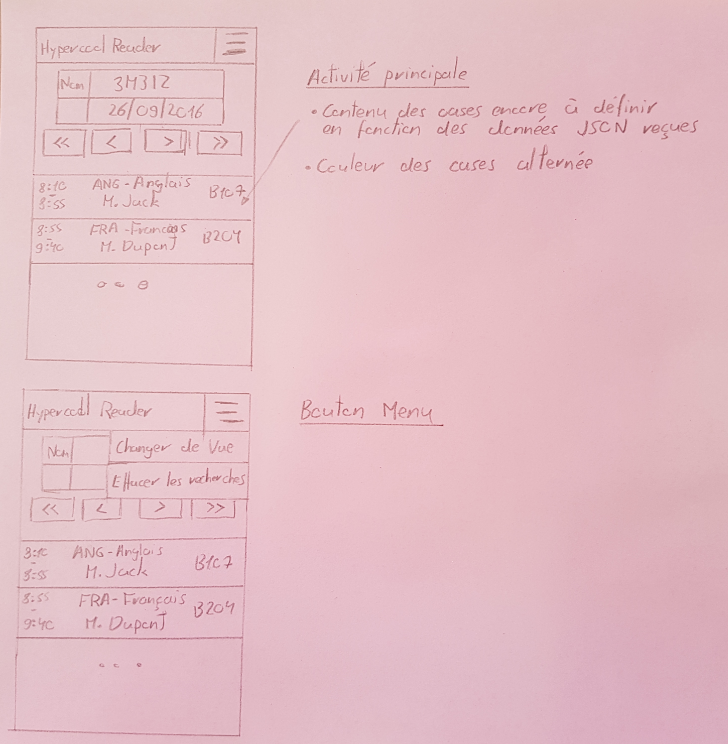 Hypercool Reader
Nom 3M3I2
26/09/2016
<< < > >>
8:10 - 8:55 ANG-Anglais M. Jack B107
8:55 - 9:40 FRA-Français M. Dupont B204
Activité principale
• Contenu des cases encore à définir
en fonction des données JSON reçues
• Couleur des cases alternée
Hypercool Reader
Nom Changer de Vue
Effacer les recherches
<< < > >>
8:10 - 8:55 ANG-Anglais M. Jack B107
8:55 - 9:40 FRA-Français M. Dupont B204
Bouton Menu